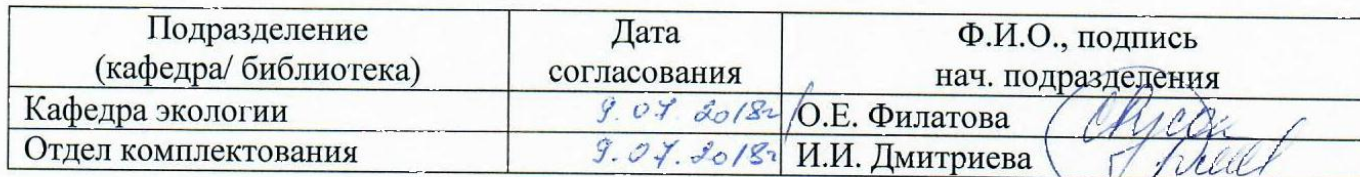 Подразделение
(кафедра/ библиотека)
Дата
согласования
Ф.И.О., подпись
нач. подразделения
Кафедра экологии 9.07.2018г О.Е. Филатова
Отдел комплектования 9.07.2018г И.И. Дмитриева